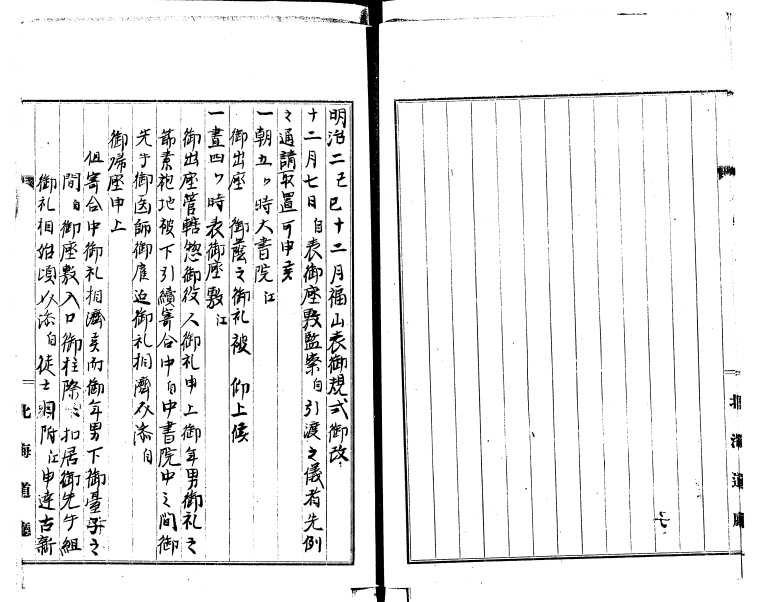 七
北海道庁
明治二己巳十二月福山表御規式御改
十二月七日自表御座敷監察自引渡之儀者先例
之通請取置可申亥
一朝五ツ時大書院江
御出座 御蔭之御礼被 仰上候
一昼四ツ時表御座敷江
御出座管轄惣御役人御礼申上御年男御礼之
節素袍地被下引続寄合中自中書院中之間御
先手御医師御雇迫御礼相済
御帰座申上
但寄合中御礼相済亥而御年男下御台子之
間自御座敷入口御柱際ニ扣居御先手組
御礼相始頃 徒士目附江申達古新
北海道廳